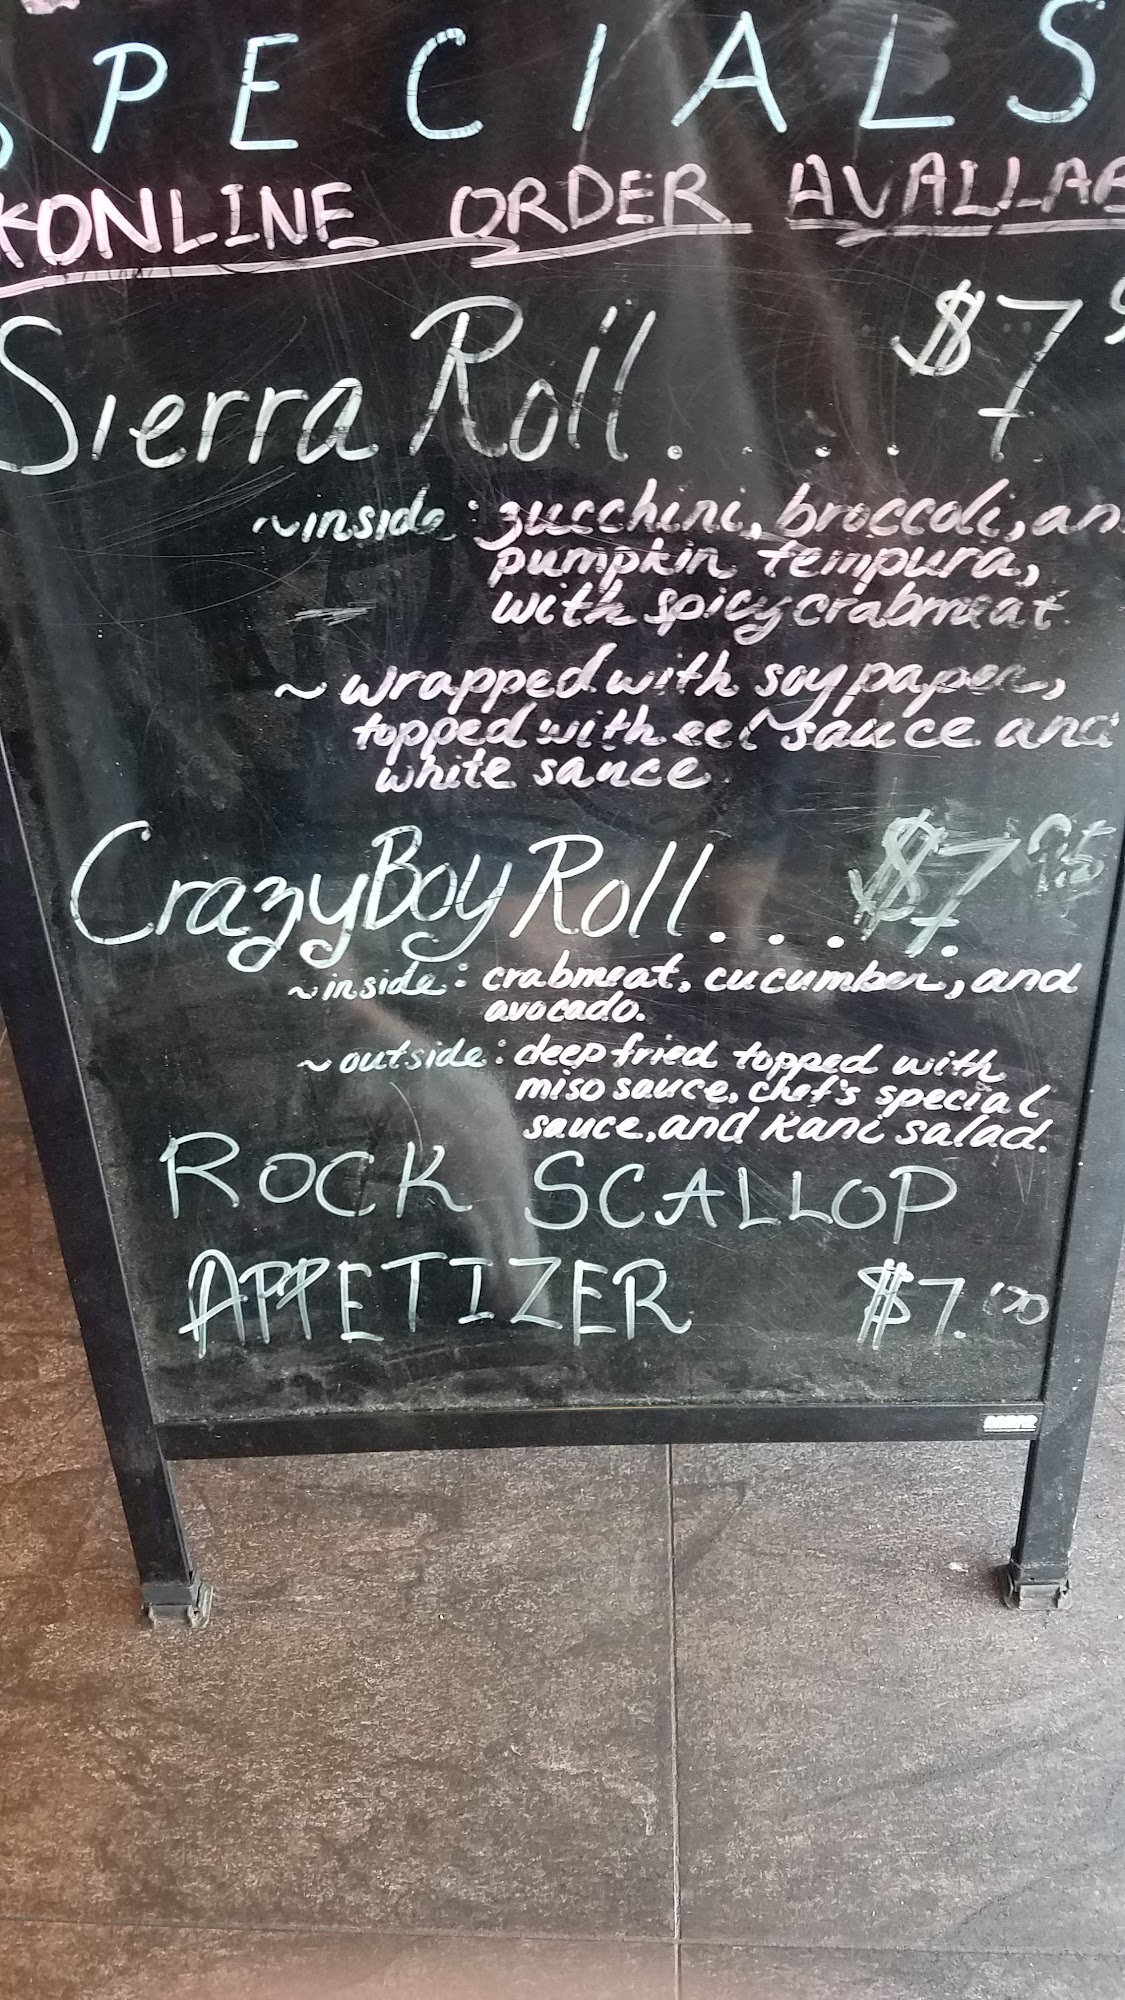 SPECIALS
*ONLINE ORDER AVAILAB
Sierra Roll . . . . $7.
~inside: zucchini, broccoli, an
pumpkin tempura,
with spicy crabmeat.
~ wrapped with soy paper,
topped with eel sauce and
white sauce
Crazy Boy Roll . . . $7.
~inside: crabmeat, cucumber, and
avocado.
~outside: deep fried topped with
miso sauce, chef's special
sauce, and kani salad.
ROCK SCALLOP
APPETIZER $7.00